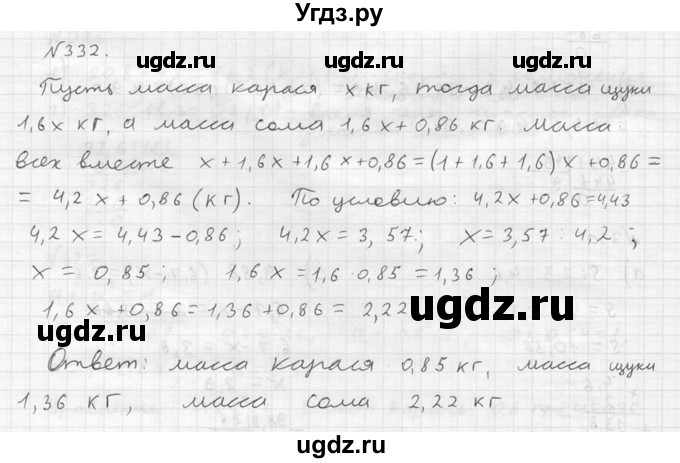 Угдз.ру
N332.
Пусть масса карася x кг, тогда масса щуки
1,6x кг, а масса сома 1,6x+0,86 кг. Масса
всех вместе x+1,6x+1,6x+0,86=(1+1,6+1,6)x+0,86=
= 4,2x+0,86 (кг). По условию: 4,2x+0,86=4,43
4,2x=4,43-0,86; 4,2x=3,57; x=3,57:4,2;
x=0,85; 1,6x=1,6·0,85=1,36;
1,6x+0,86=1,36+0,86=2,22
Ответ: масса карася 0,85 кг, масса щуки
1,36 кг, масса сома 2,22 кг
ugdz.ru
ugdz.ru
ugdz.ru
ugdz.ru
ugdz.ru
ugdz.ru
ugdz.ru
ugdz.ru